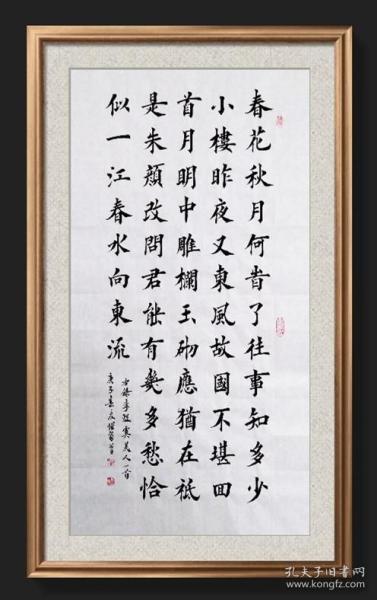 春花秋月何旹了往事知多少
小樓昨夜又東風故國不堪回
首月明中雕欄玉砌應猶在祗
是朱顏改問君能有幾多愁恰
似一江春水向東流
李煜虞美人一首
庚子
孔夫子旧书网
www.kongfz.com